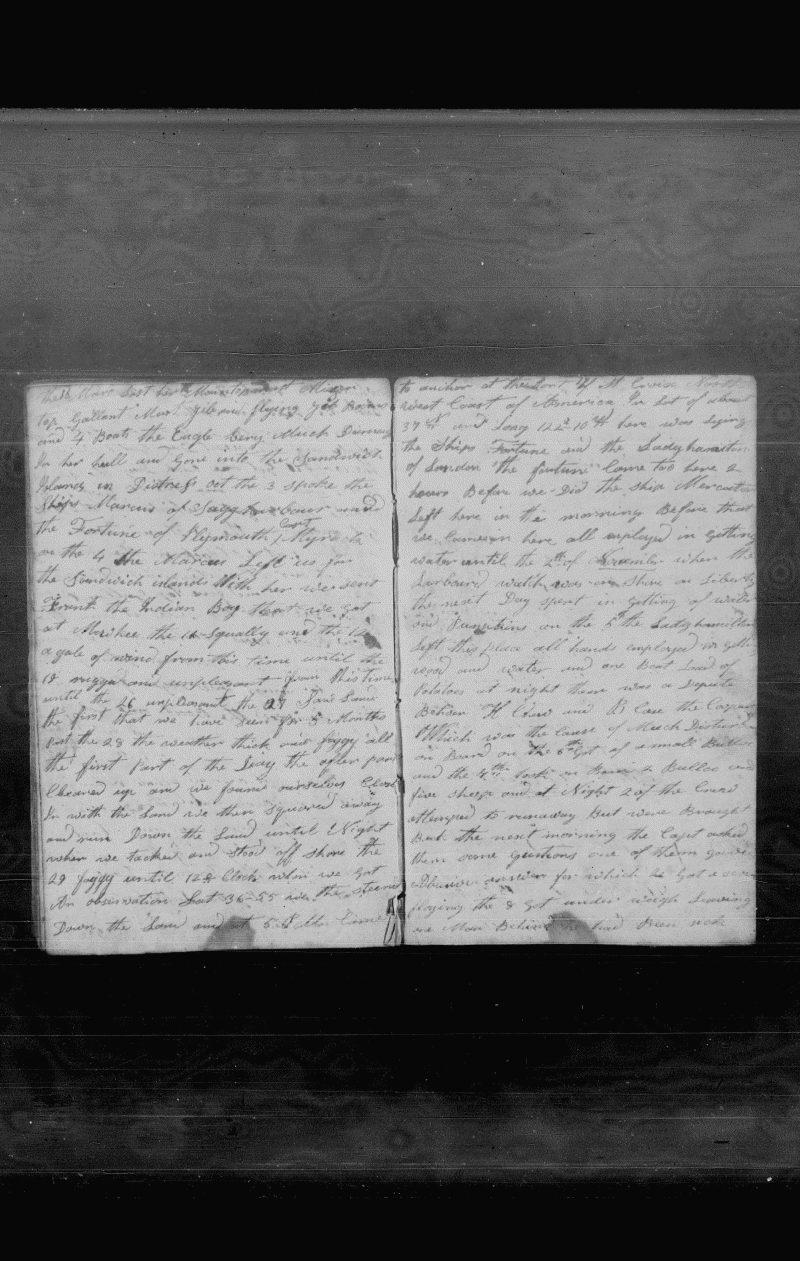 top Gallant Mast Jib and flying Jib Boom
and 4 Boats the Eagle very Much Dammag
In her hull and Gone into the Sandwich
Islands in Distress oct the 3 spoke the
Ships Marcus of Sagg harbour and
the Fortune of Plymouth Capt
on the 4 the Marcus Left us for
the Sandwich islands With her we sent
the Indian Boy that we got
at Mowhee the Squally and the
a gale of wind from this time until the
18 and unpleasant from this time
until the 26 unpleasant the 27 Saw Land
the first that we have seen for 5 Months
But the 28 the weather thick and foggy all
the first part of the Day the after part
Cleared up and we found ourselves Close
In with the Land we then Squared away
and run Down the Land until Night
when we tacked and stood off shore the
29 foggy until 12 Clock when we got
An observation Lat 36-55 we then steered
Down the Land and at 5 Came
to anchor at the Port of St Cruise North
west Coast of America In Lat of about
37 and Long 122 10 W here was lying
the Ships Fortune and the Lady hamilton
of London the fortune Came too here 2
hours Before we Did the ship
left here in the morning Before that
we Came in here all employed in Getting
water until the 2 of November when the
Larboard watch was on Shore on Liberty
the next Day spent in Getting of water
and on the 5 the Lady hamilton
left this place all hands employed in gett
wood and water and one Boat Load of
Potatoes at night there was a Dispute
Between H and B Case the Cooper
Which was the Cause of Much Disturb
on Board on the 6 Got of a small Bullock
and the 7th took on Board 2 Bullocs and
five sheep and at Night 2 of the Crew
attempted to runaway But were Brought
Back the next morning the Capt asked
them some Questions one of them gave
abusive answer for which he Got a
floging the 8 Got under weigh Leaving
one Man Behind he had Been sick